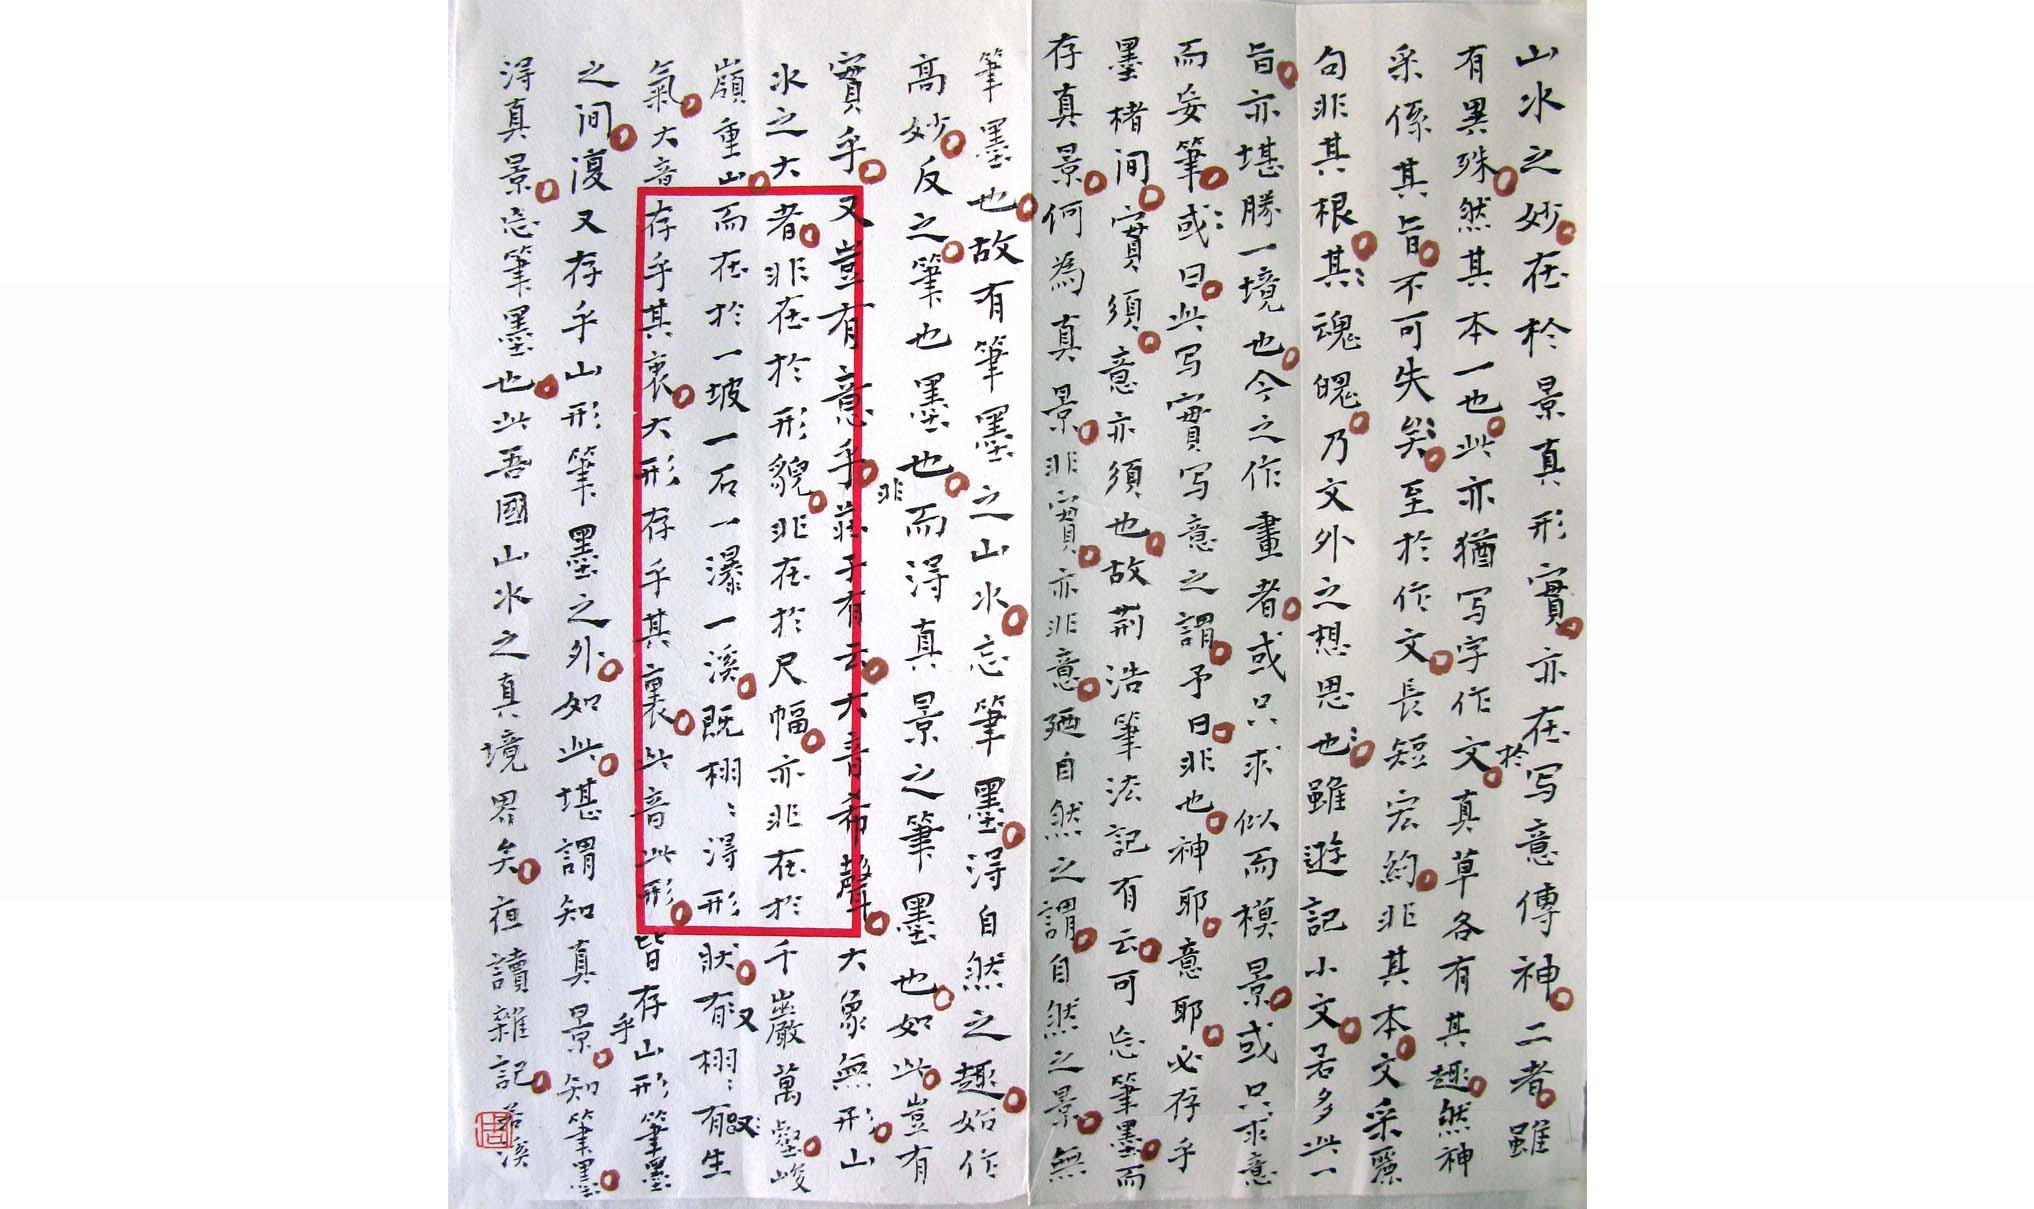 山水之妙在於景真形實亦在写意傳神二者雖
有異殊然其本一也此亦猶写字作文真草各有其趣然神
於
采係其旨不可失矣至於作文長短宏約非其本文采麗
句非其根其魂魄乃文外之想思也雖遊記小文若多此一
旨亦堪勝一境也今之作畫者或只求似而模景或只求意
而妄筆或曰此写實写意之謂予曰非也神耶意耶必存乎
墨楮间實須意亦須也故荆浩筆法記有云可忘筆墨而
存真景何為真景非實亦非意廼自然之謂自然之景無
筆墨也故有筆墨之山水忘筆墨得自然之趣始作
高妙反之筆也墨也而得真景之筆墨也如此豈有
非
實乎又豈有意乎莊子有云大音希聲大象無形山
水之大者非在於形貌非在於尺幅亦非在於千巖萬壑峻
嶺重山而在於一坡一石一瀑一溪既栩〻得形狀有栩〻有生
又
氣大音存乎其裏大形存乎其裏此音此形皆存山形筆墨
乎
之间復又存乎山形筆墨之外如此堪謂知真景知筆墨
得真景忘筆墨也此吾國山水之真境界矣夜讀雜記 若溪